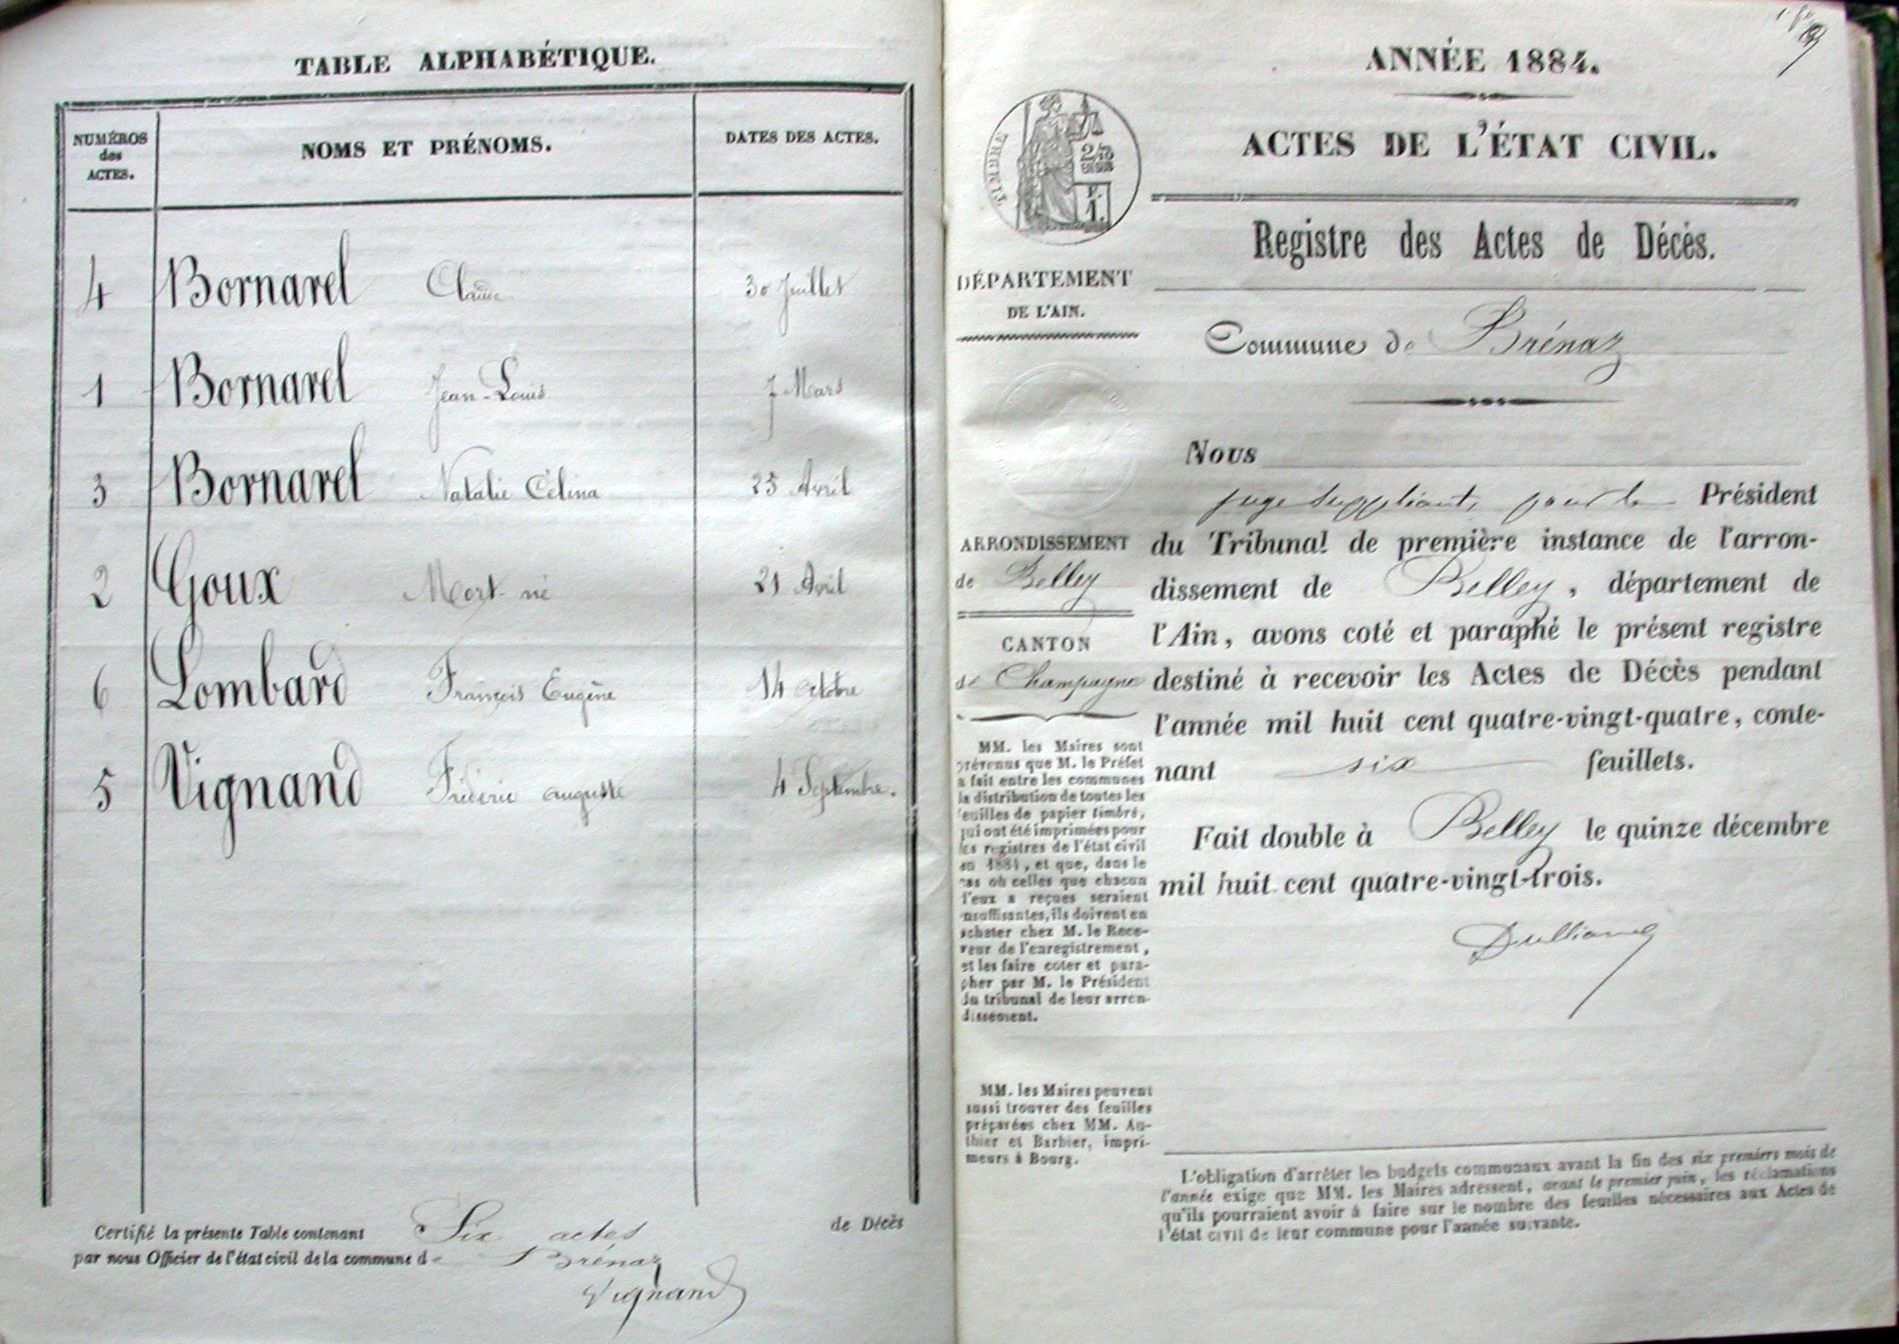 TABLE ALPHABÉTIQUE.
NUMÉROS des ACTES.
NOMS ET PRÉNOMS.
DATES DES ACTES.
4 Bornarel Claude 30 Juillet
1 Bornarel Jean-Louis 7 Mars
3 Bornarel Natalie Célina 25 Avril
2 Goux Mort né 21 Avril
6 Lombard François Eugène 14 octobre
5 Vignand Frédéric auguste 4 Septembre.
Certifié la présente Table contenant Six actes de Décès
par nous Officier de l'état civil de la commune de Brénaz
Vignand
ANNÉE 1884.
ACTES DE L'ÉTAT CIVIL.
TIMBRE
Registre des Actes de Décès.
DÉPARTEMENT
DE L'AIN.
Commune de Brénaz
ARRONDISSEMENT
de Belley
CANTON
de Champagne
MM. les Maires sont
prévenus que M. le Préfet
a fait entre les communes
la distribution de toutes les
feuilles de papier timbré,
qui ont été imprimées pour
les registres de l'état civil
en 1884, et que, dans le
cas où celles que chacun
d'eux a reçues seraient
insuffisantes, ils doivent en
acheter chez M. le Rece-
veur de l'enregistrement,
et les faire coter et para-
pher par M. le Président
du tribunal de leur arron-
dissement.
MM. les Maires peuvent
aussi trouver des feuilles
préparées chez MM. Au-
thier et Barbier, impri-
meurs à Bourg.
Nous
juge suppléant, pour le Président
du Tribunal de première instance de l'arron-
dissement de Belley, département de
l'Ain, avons coté et paraphé le présent registre
destiné à recevoir les Actes de Décès pendant
l'année mil huit cent quatre-vingt-quatre, conte-
nant six feuillets.
Fait double à Belley le quinze décembre
mil huit cent quatre-vingt-trois.
L'obligation d'arrêter les budgets communaux avant la fin des six premiers mois de
l'année exige que MM. les Maires adressent, avant le premier juin, les réclamations
qu'ils pourraient avoir à faire sur le nombre des feuilles nécessaires aux Actes de
l'état civil de leur commune pour l'année suivante.